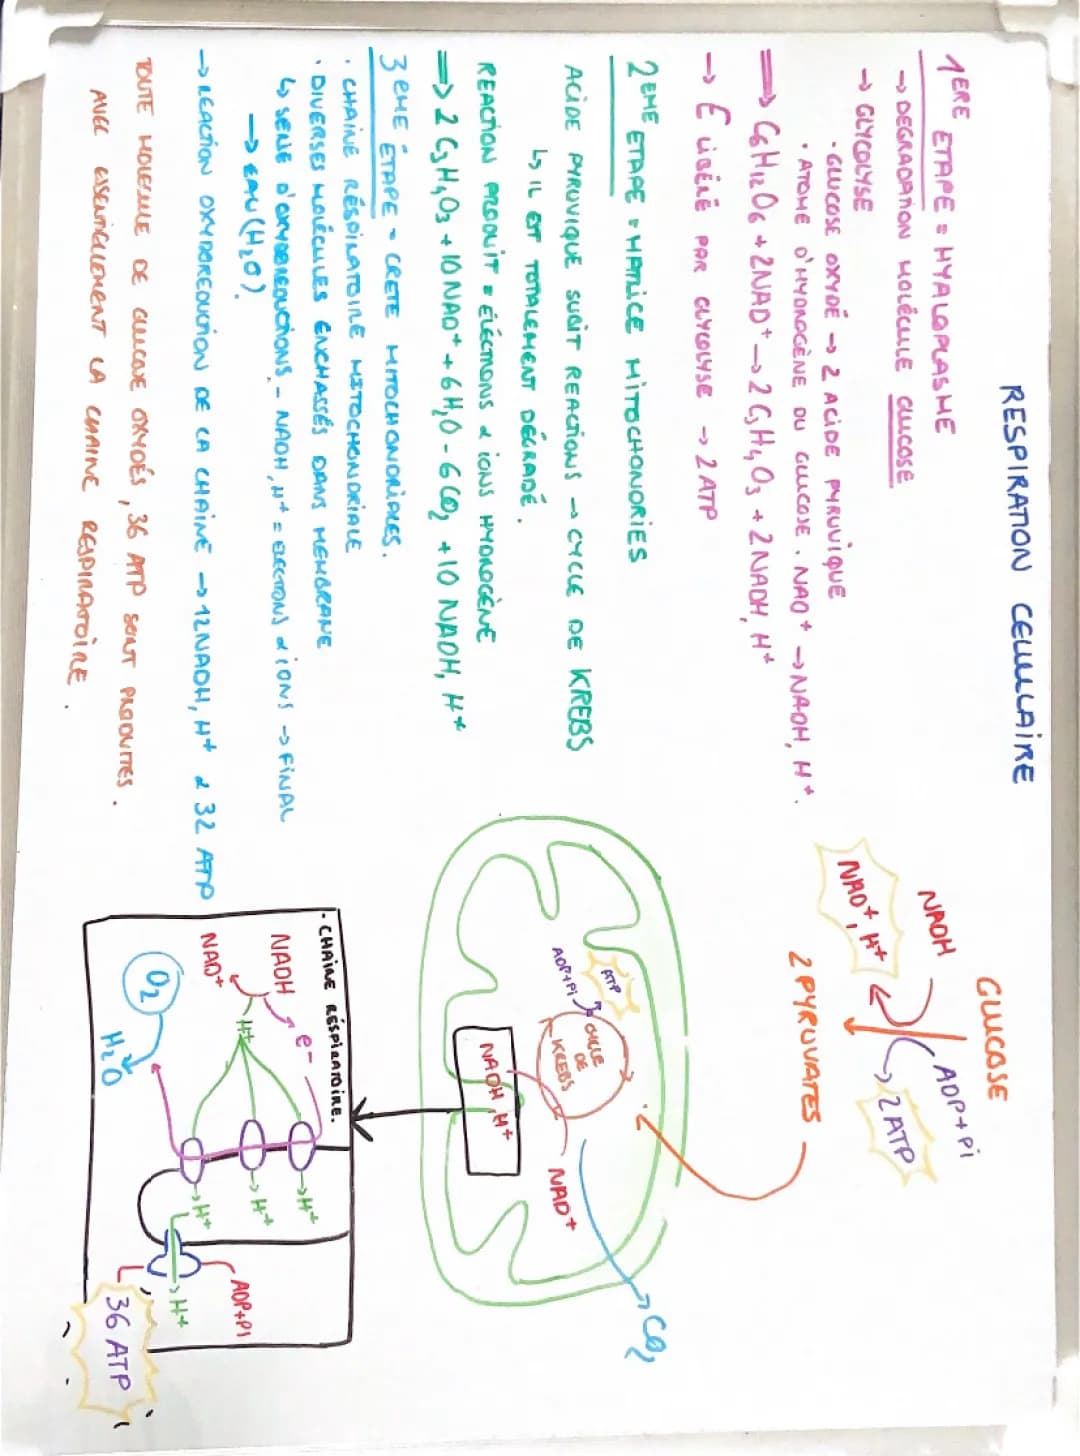 RESPIRATION CELLULAIRE
1ERE ETAPE = HYALOPLASME
→ DEGRADATION MOLÉCULE GLUCOSE
→ GLYCOLYSE
· GLUCOSE OXYDÉ → 2 ACIDE PYRUVIQUE
· ATOME D'HYDROGÈNE DU GLUCOSE. NAD+ → NADH, H+.
⇒ C6H12O6 + 2NAD+ → 2 C3H4O3 + 2NADH, H+
→ E LIBÉRÉ PAR GLYCOLYSE → 2 ATP
2EME ETAPE = MATRICE MITOCHONDRIES
ACIDE PYRUVIQUE SUBIT REACTIONS → CYCLE DE KREBS
↳ IL EST TOTALEMENT DÉGRADÉ.
REACTION PRODUIT = ELÉCTRONS & IONS HYDROGÈNE
⇒ 2 C3H4O3 + 10 NAD+ + 6 H2O - 6 CO2 + 10 NADH, H+
3EME ÉTAPE - CRETE MITOCHONDRIALES.
· CHAINE RÉSPIRATOIRE MITOCHONDRIALE
· DIVERSES MOLÉCULES ENCHASSÉS DANS MEMBRANE
↳ SERIE D'OXYDOREDUCTIONS - NADH, H+ = ELECTONS & IONS → FINAL
→ EAU (H2O).
→ REACTION OXYDOREDUCTION DE LA CHAINE → 12NADH, H+ & 32 ATP
TOUTE MOLECULE DE GLUCOSE OXYDÉS, 36 ATP SONT PRODUITES.
AVEC ESSENTIELLEMENT LA CHAINE RESPIRATOIRE.
GLUCOSE
NADH
ADP+Pi
NAD+, H+
2 ATP
2 PYRUVATES
ATP
ADP+Pi
CYCLE
DE
KREBS
CO2
NADH, H+
NAD+
· CHAINE RÉSPIRATOIRE.
NADH
e-
NAD+
H+
→ H+
→ H+
→ H+
O2
H2O
ADP+Pi
→ H+
36 ATP